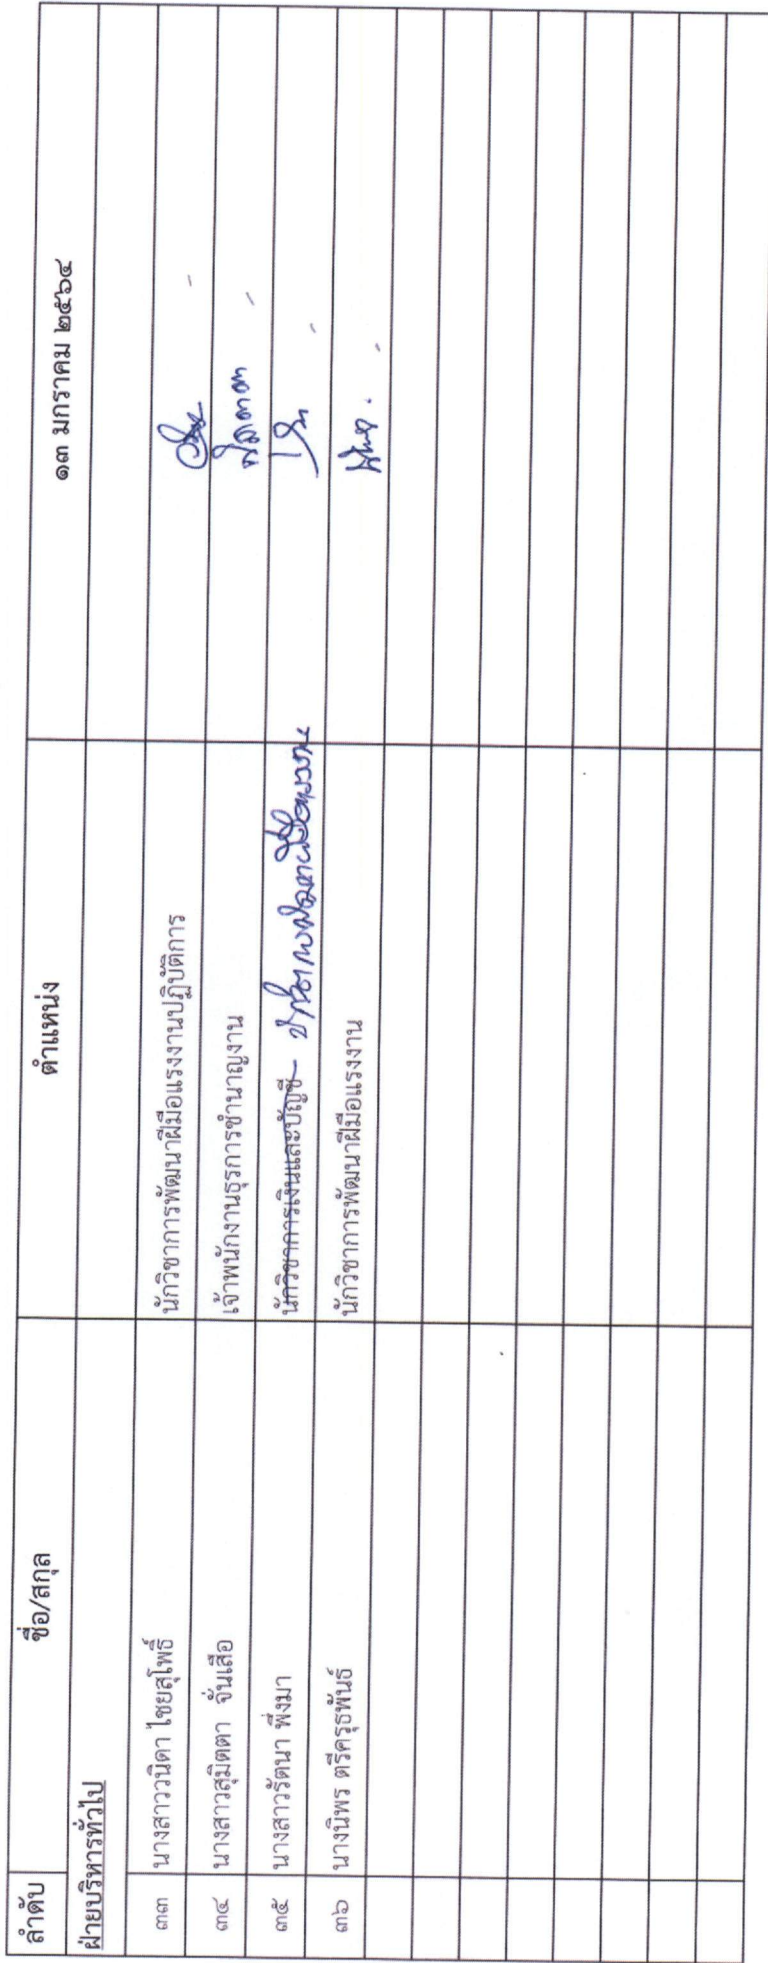 ลำดับ ชื่อ/สกุล ตำแหน่ง ๑๓ มกราคม ๒๕๖๔
ฝ่ายบริหารทั่วไป
๓๓ นางสาววนิดา ไชยสุโพธิ์ นักวิชาการพัฒนาฝีมือแรงงานปฏิบัติการ
๓๔ นางสาวสุมิตตา จั่นเสือ เจ้าพนักงานธุรการชำนาญงาน
๓๕ นางสาวรัตนา พึ่งมา นักวิชาการเงินและบัญชี
๓๖ นางนิพร ตรีครุธพันธ์ นักวิชาการพัฒนาฝีมือแรงงาน